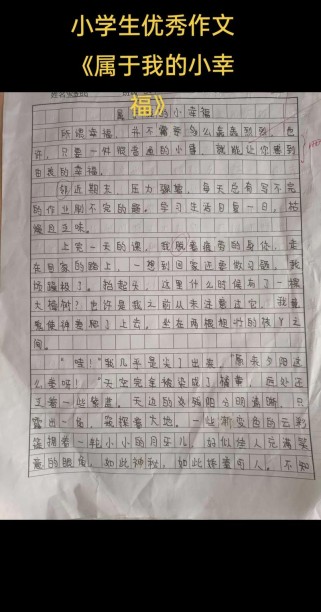 小学生优秀作文
《属于我的小幸
福》
小幸福
所谓幸福，并不需要多么轰轰烈烈，也
许，只要一件很普通的小事，就能让你感到
自我的幸福。
邻近期末，压力骤增，每天总有写不完
的作业刷不完的题。学习生活日复一日，枯
燥近乏味。
上完一天的课，我脱着疲惫的身体，走
在回家的路上，一想到回家还要做习题，我
烦躁极了。抬起头，这里什么时候有了一棵
大榕树？也许是我之前从未注意过它。我
使神差爬了上去，坐在两根粗
间。
“哇！”我几乎是尖了出来，“原来夕阳这
么美呀！”天空完全被染成了橘黄，远处还
支着一些紫蓝。天边的 阳 明 晰，只
露出一角，笼 着大地。一些渐变色的云彩
簇拥着一轮小小的月牙儿，好似佳人充满笑
意的眼角，如此神秘，如此 可人。不知